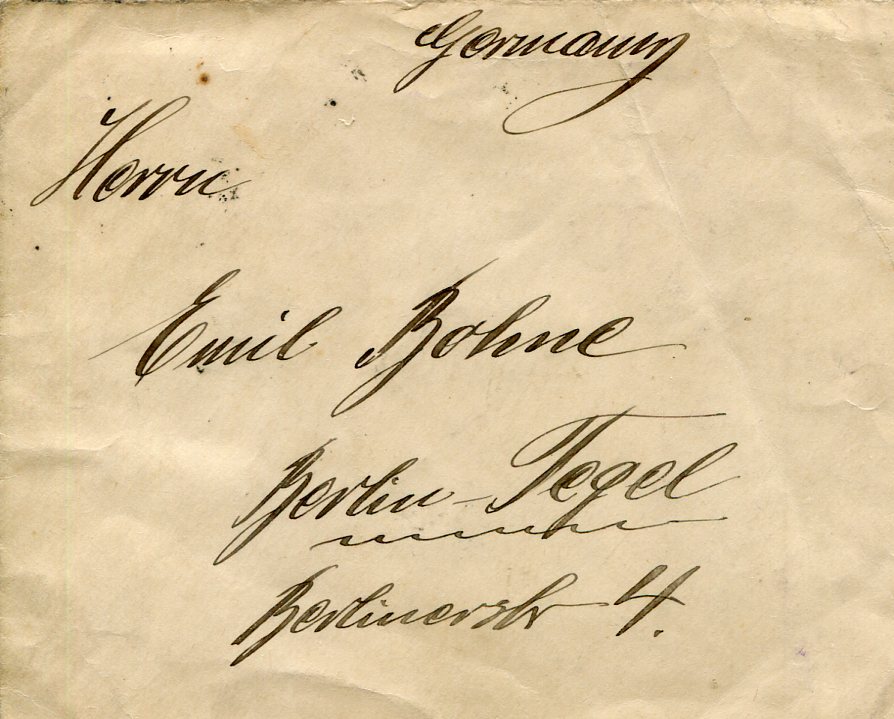 Germany
Herrn
Emil Bohne
Berlin-Tegel
Berlinerstr 4.